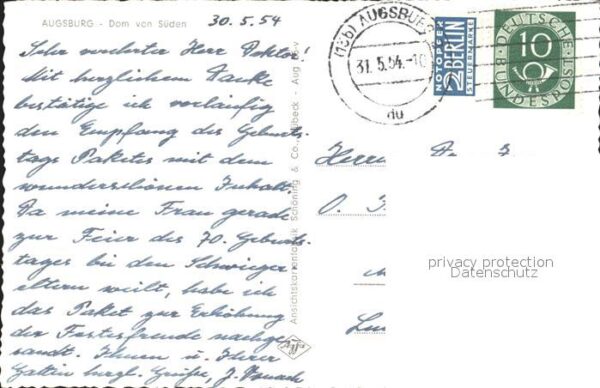 AUGSBURG - Dom von Süden
30. 5. 54
Sehr verehrter Herr Doktor!
Mit herzlichem Danke
bestätige ich vorläufig
den Empfang des Geburts-
tags Paketes mit dem
wunderschönen Inhalt.
Da meine Frau gerade
zur Feier des 70. Geburts-
tages bei den Schwieger
eltern weilt, habe ich
das Paket zur Erhöhung
der Festesfreude nachge-
sandt. Ihnen u. Ihrer
Gattin herzl. Grüße, J.
Ansichtskartenfabrik Schöning & Co., Lübeck
Agfa
(13b) AUGSBURG
31.5.54.-10
du
NOTOPFER
2 BERLIN
STEUERMARKE
DEUTSCHE
BUNDESPOST
10
Herrn
O.
privacy protection
Datenschutz